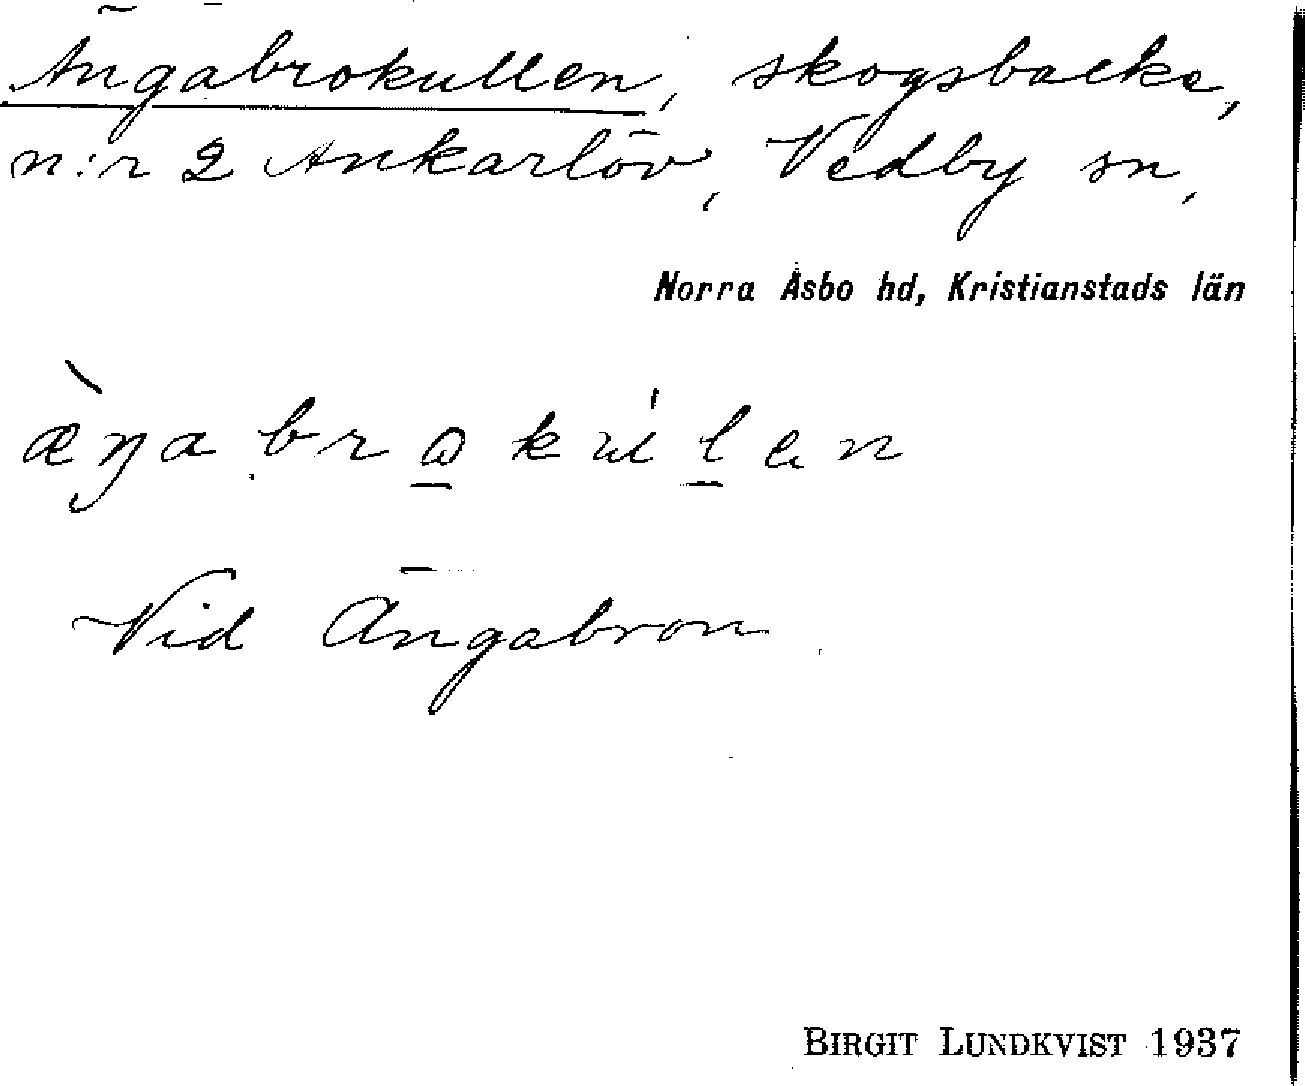 Ängabrokullen, skogsbacke,
n:r 2 Ankarlöv, Vedby sn,
Norra Åsbo hd, Kristianstads län
æ̀ŋabrωkúlen
Vid Ängabron
BIRGIT LUNDKVIST 1937